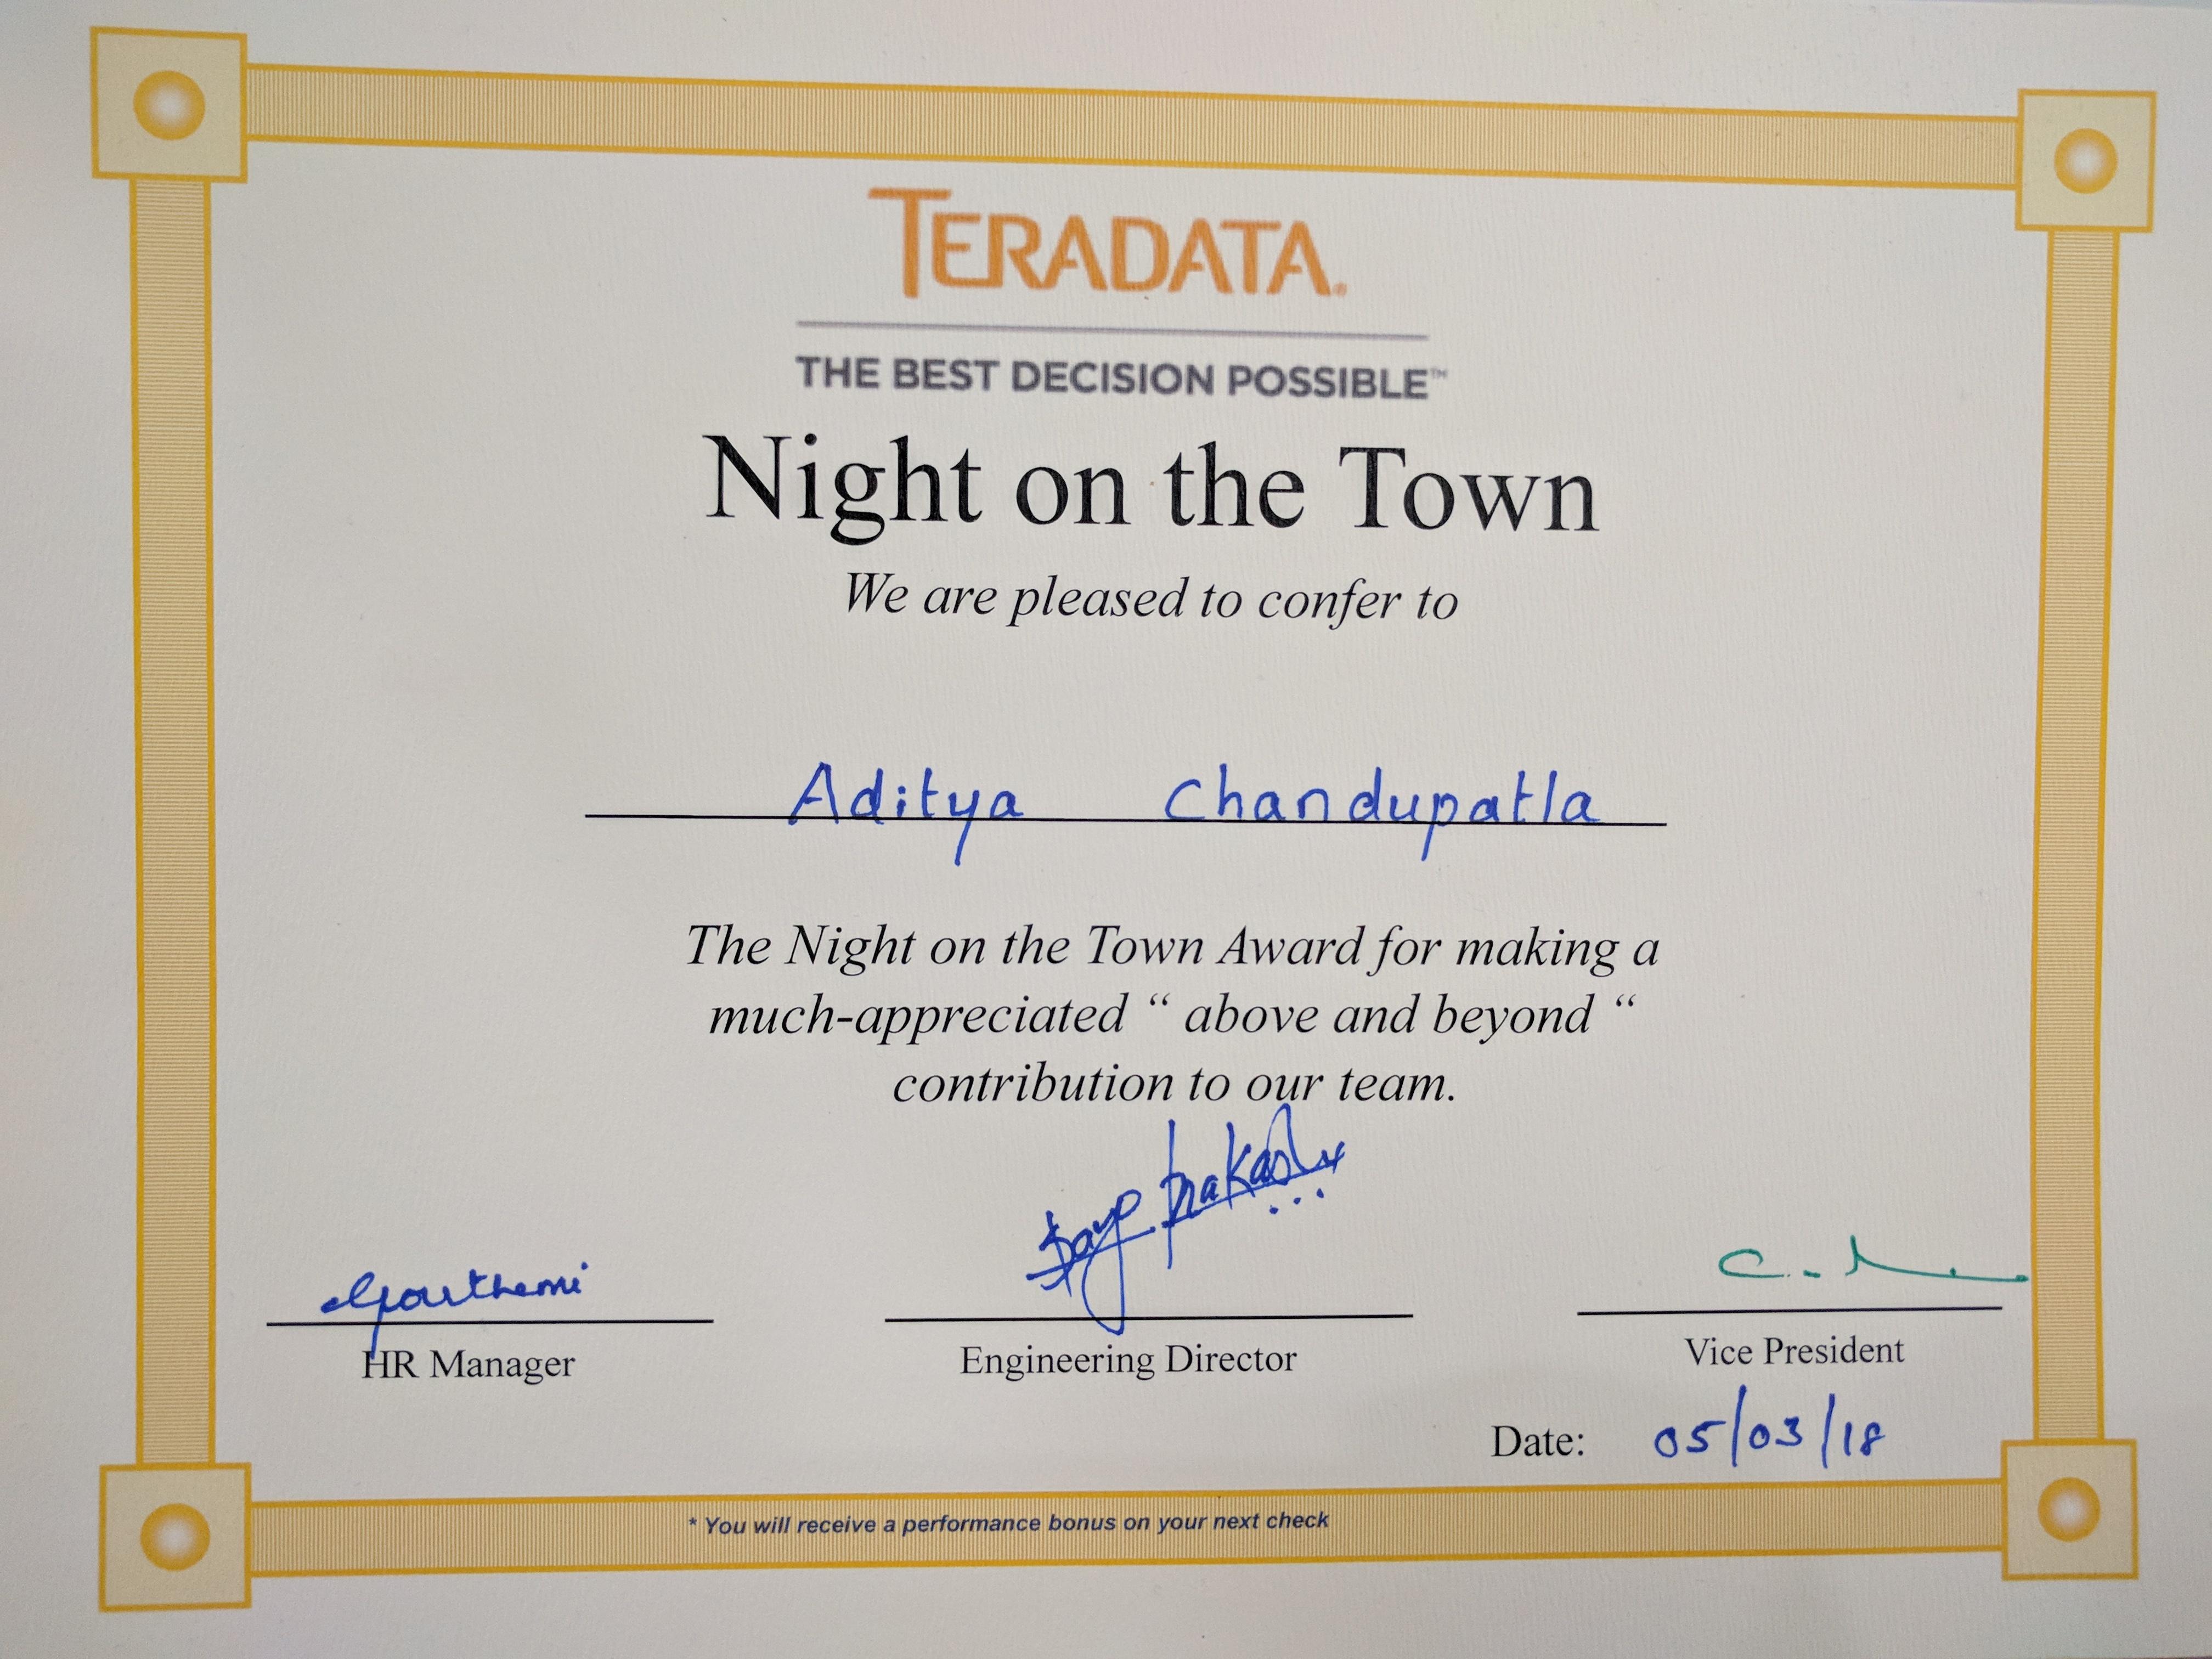 TERADATA®
THE BEST DECISION POSSIBLE™
Night on the Town
We are pleased to confer to
Aditya Chandupatla
The Night on the Town Award for making a
much-appreciated “ above and beyond “
contribution to our team.
HR Manager Engineering Director Vice President
Date: 05/03/18
* You will receive a performance bonus on your next check